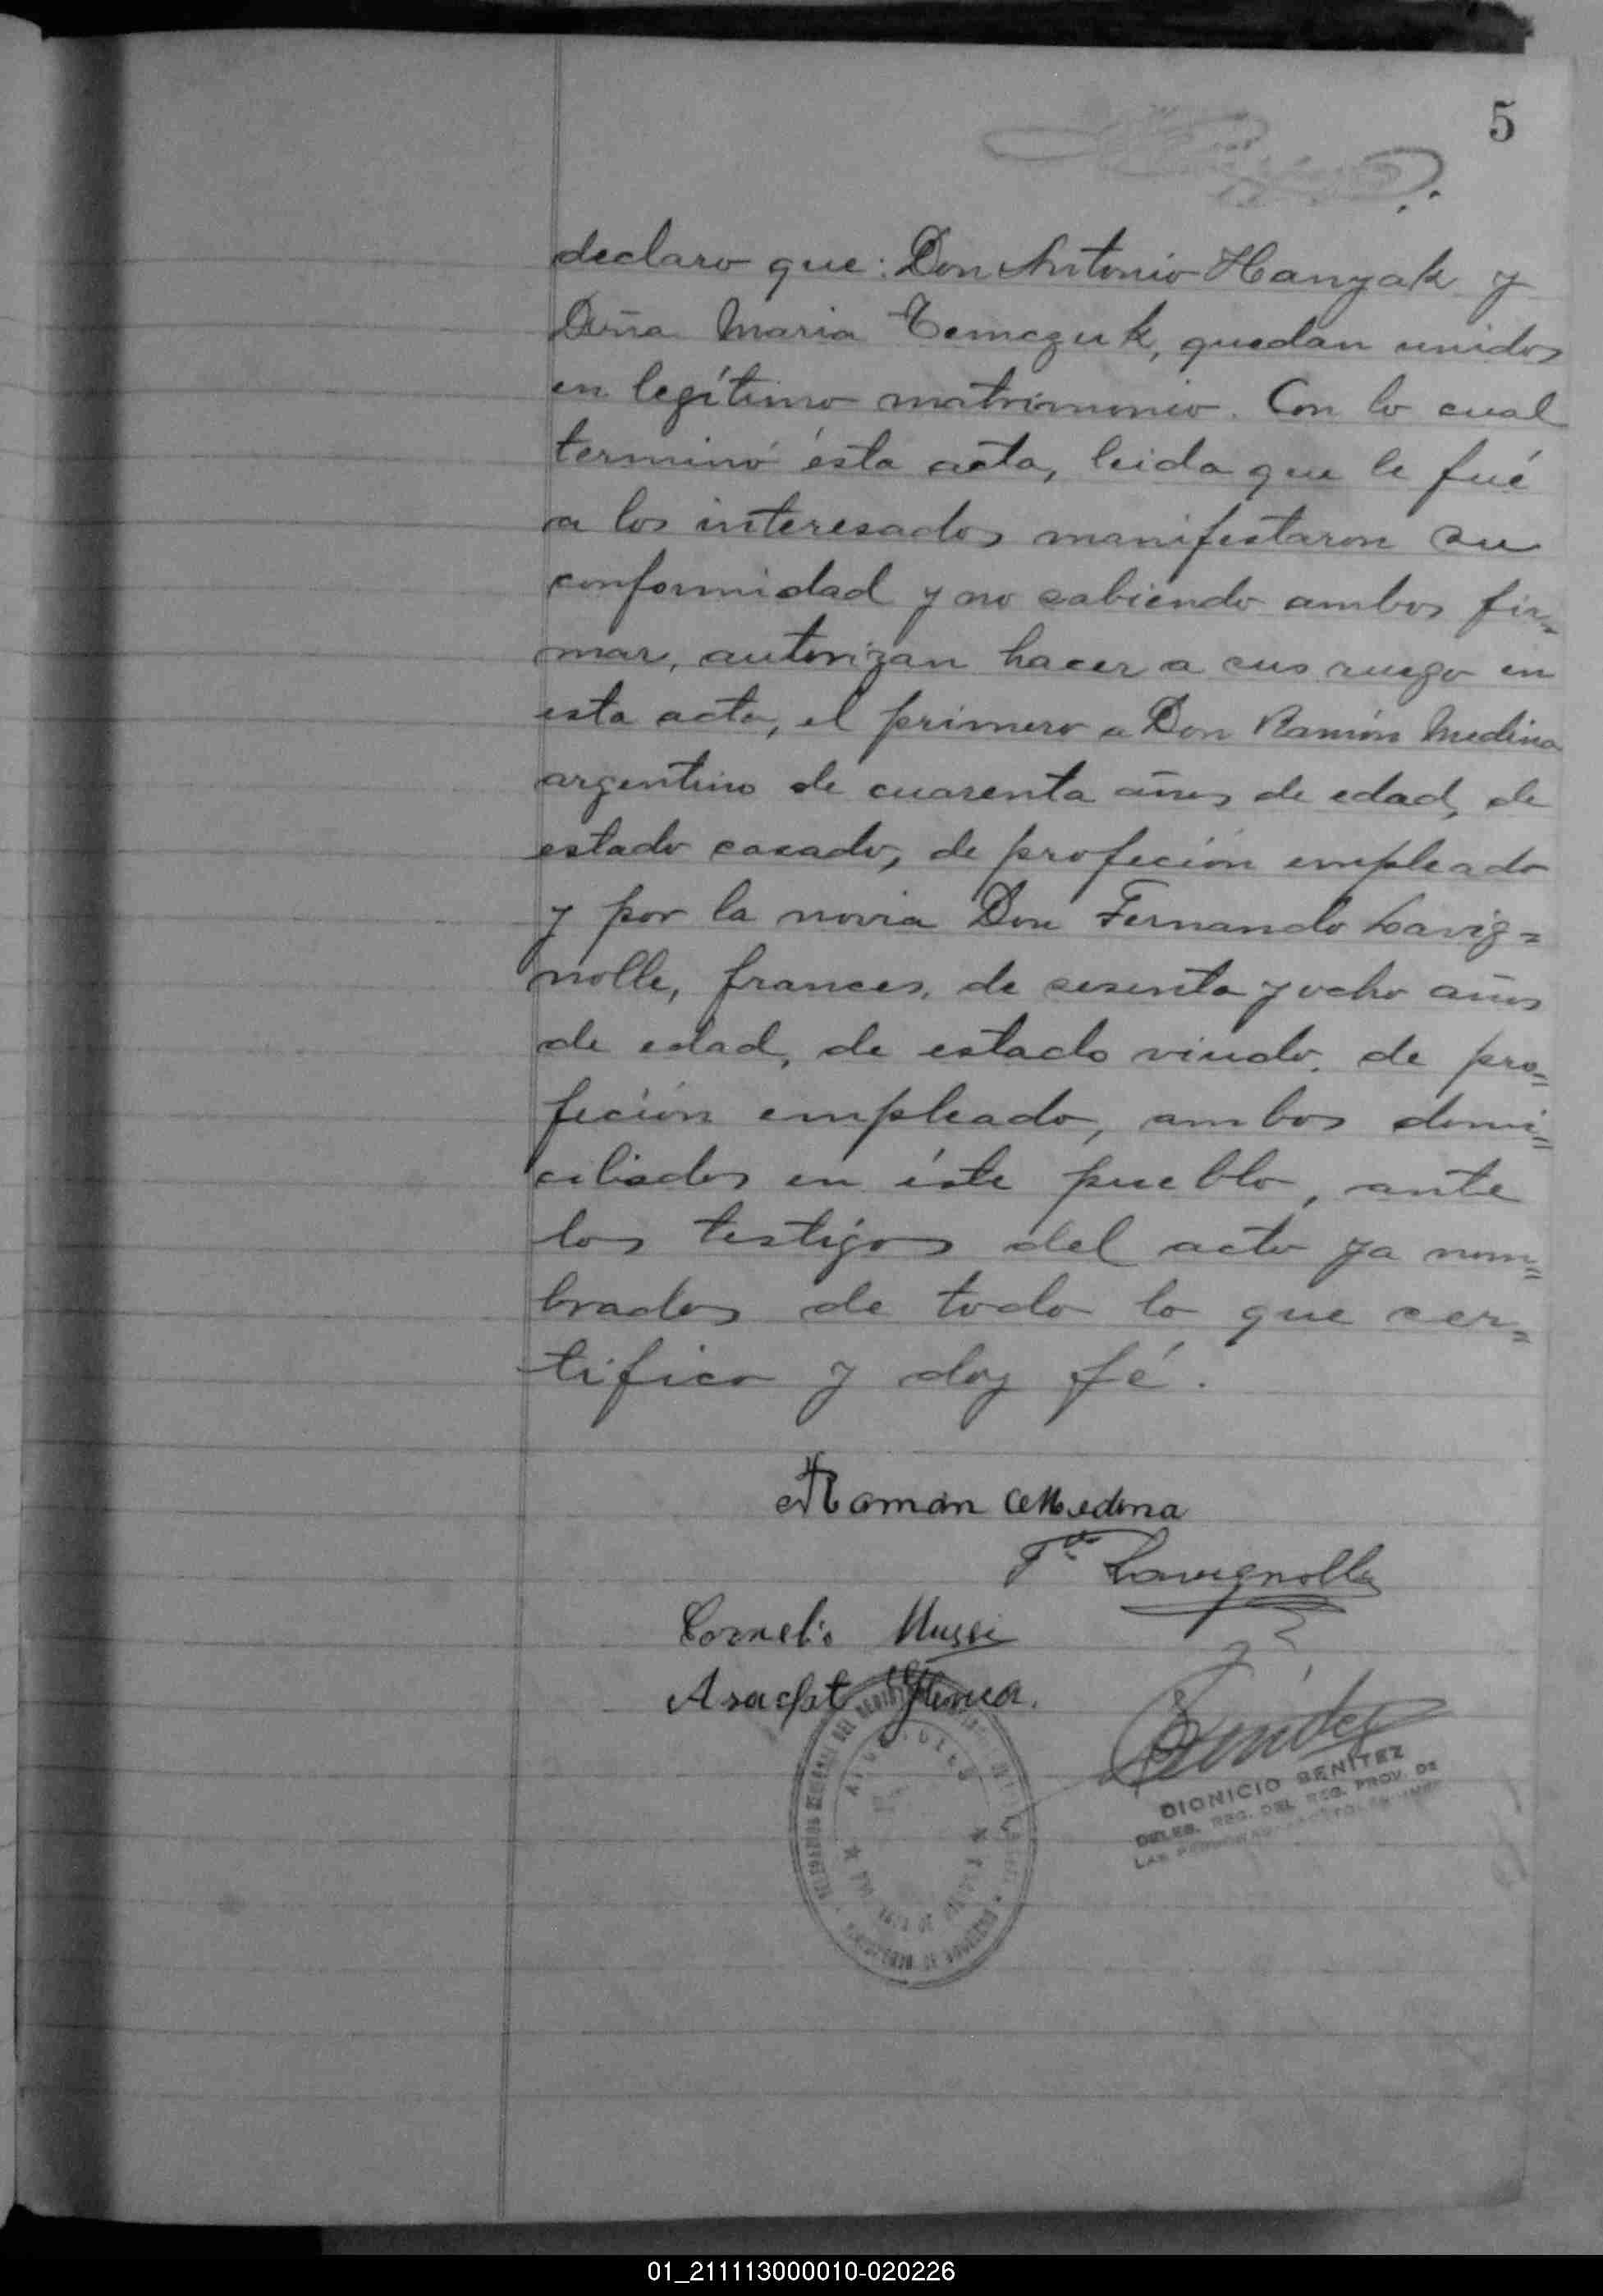 5
declaro que: Don Antonio Hanyak y
Doña Maria Temczuk, quedan unidos
en legítimo matrimonio. Con lo cual
terminó ésta acta, leida que le fué
a los interesados manifestaron su
conformidad y no sabiendo ambos fir-
mar, autorizan hacer a sus ruego en
esta acto, el primero a Don Ramón Medina
argentino de cuarenta años de edad, de
estado casado, de profeción empleado
y por la novia Don Fernando Lavig=
nolle, frances, de sesenta y ocho años
de edad, de estado viudo, de pro=
feción empleado, ambos domi=
ciliados en éste pueblo, ante
los testigos del acto ya nom=
brados de todo lo que cer=
tifico y doy fé.
Ramón Medina
F. Lavignolle
Cornelio Mussi
Benitez
DIONICIO BENITEZ
DELEG. REG. DEL REG. PROV. DE
LAS
01_211113000010-020226